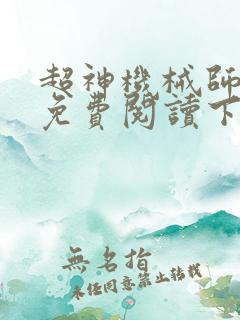 超神機械師
免費閱讀下
無名指
未經同意禁止轉載